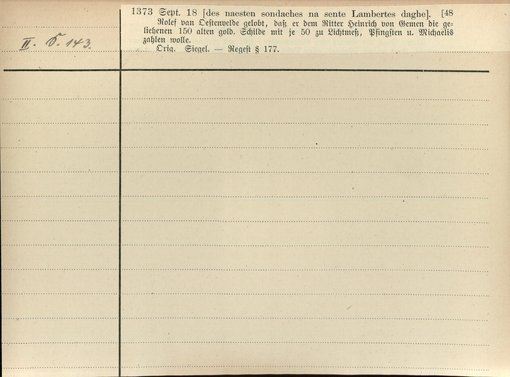 1373 Sept. 18 [des naesten sondaches na sente Lambertes daghe]. [48
Rolef van Oestenvelde gelobt, daß er dem Ritter Heinrich von Gemen die ge-
liehenen 150 alten gold. Schilde mit je 50 zu Lichtmeß, Pfingsten u. Michaelis
zahlen wolle.
Orig. Siegel. — Regest § 177.
II. 143.